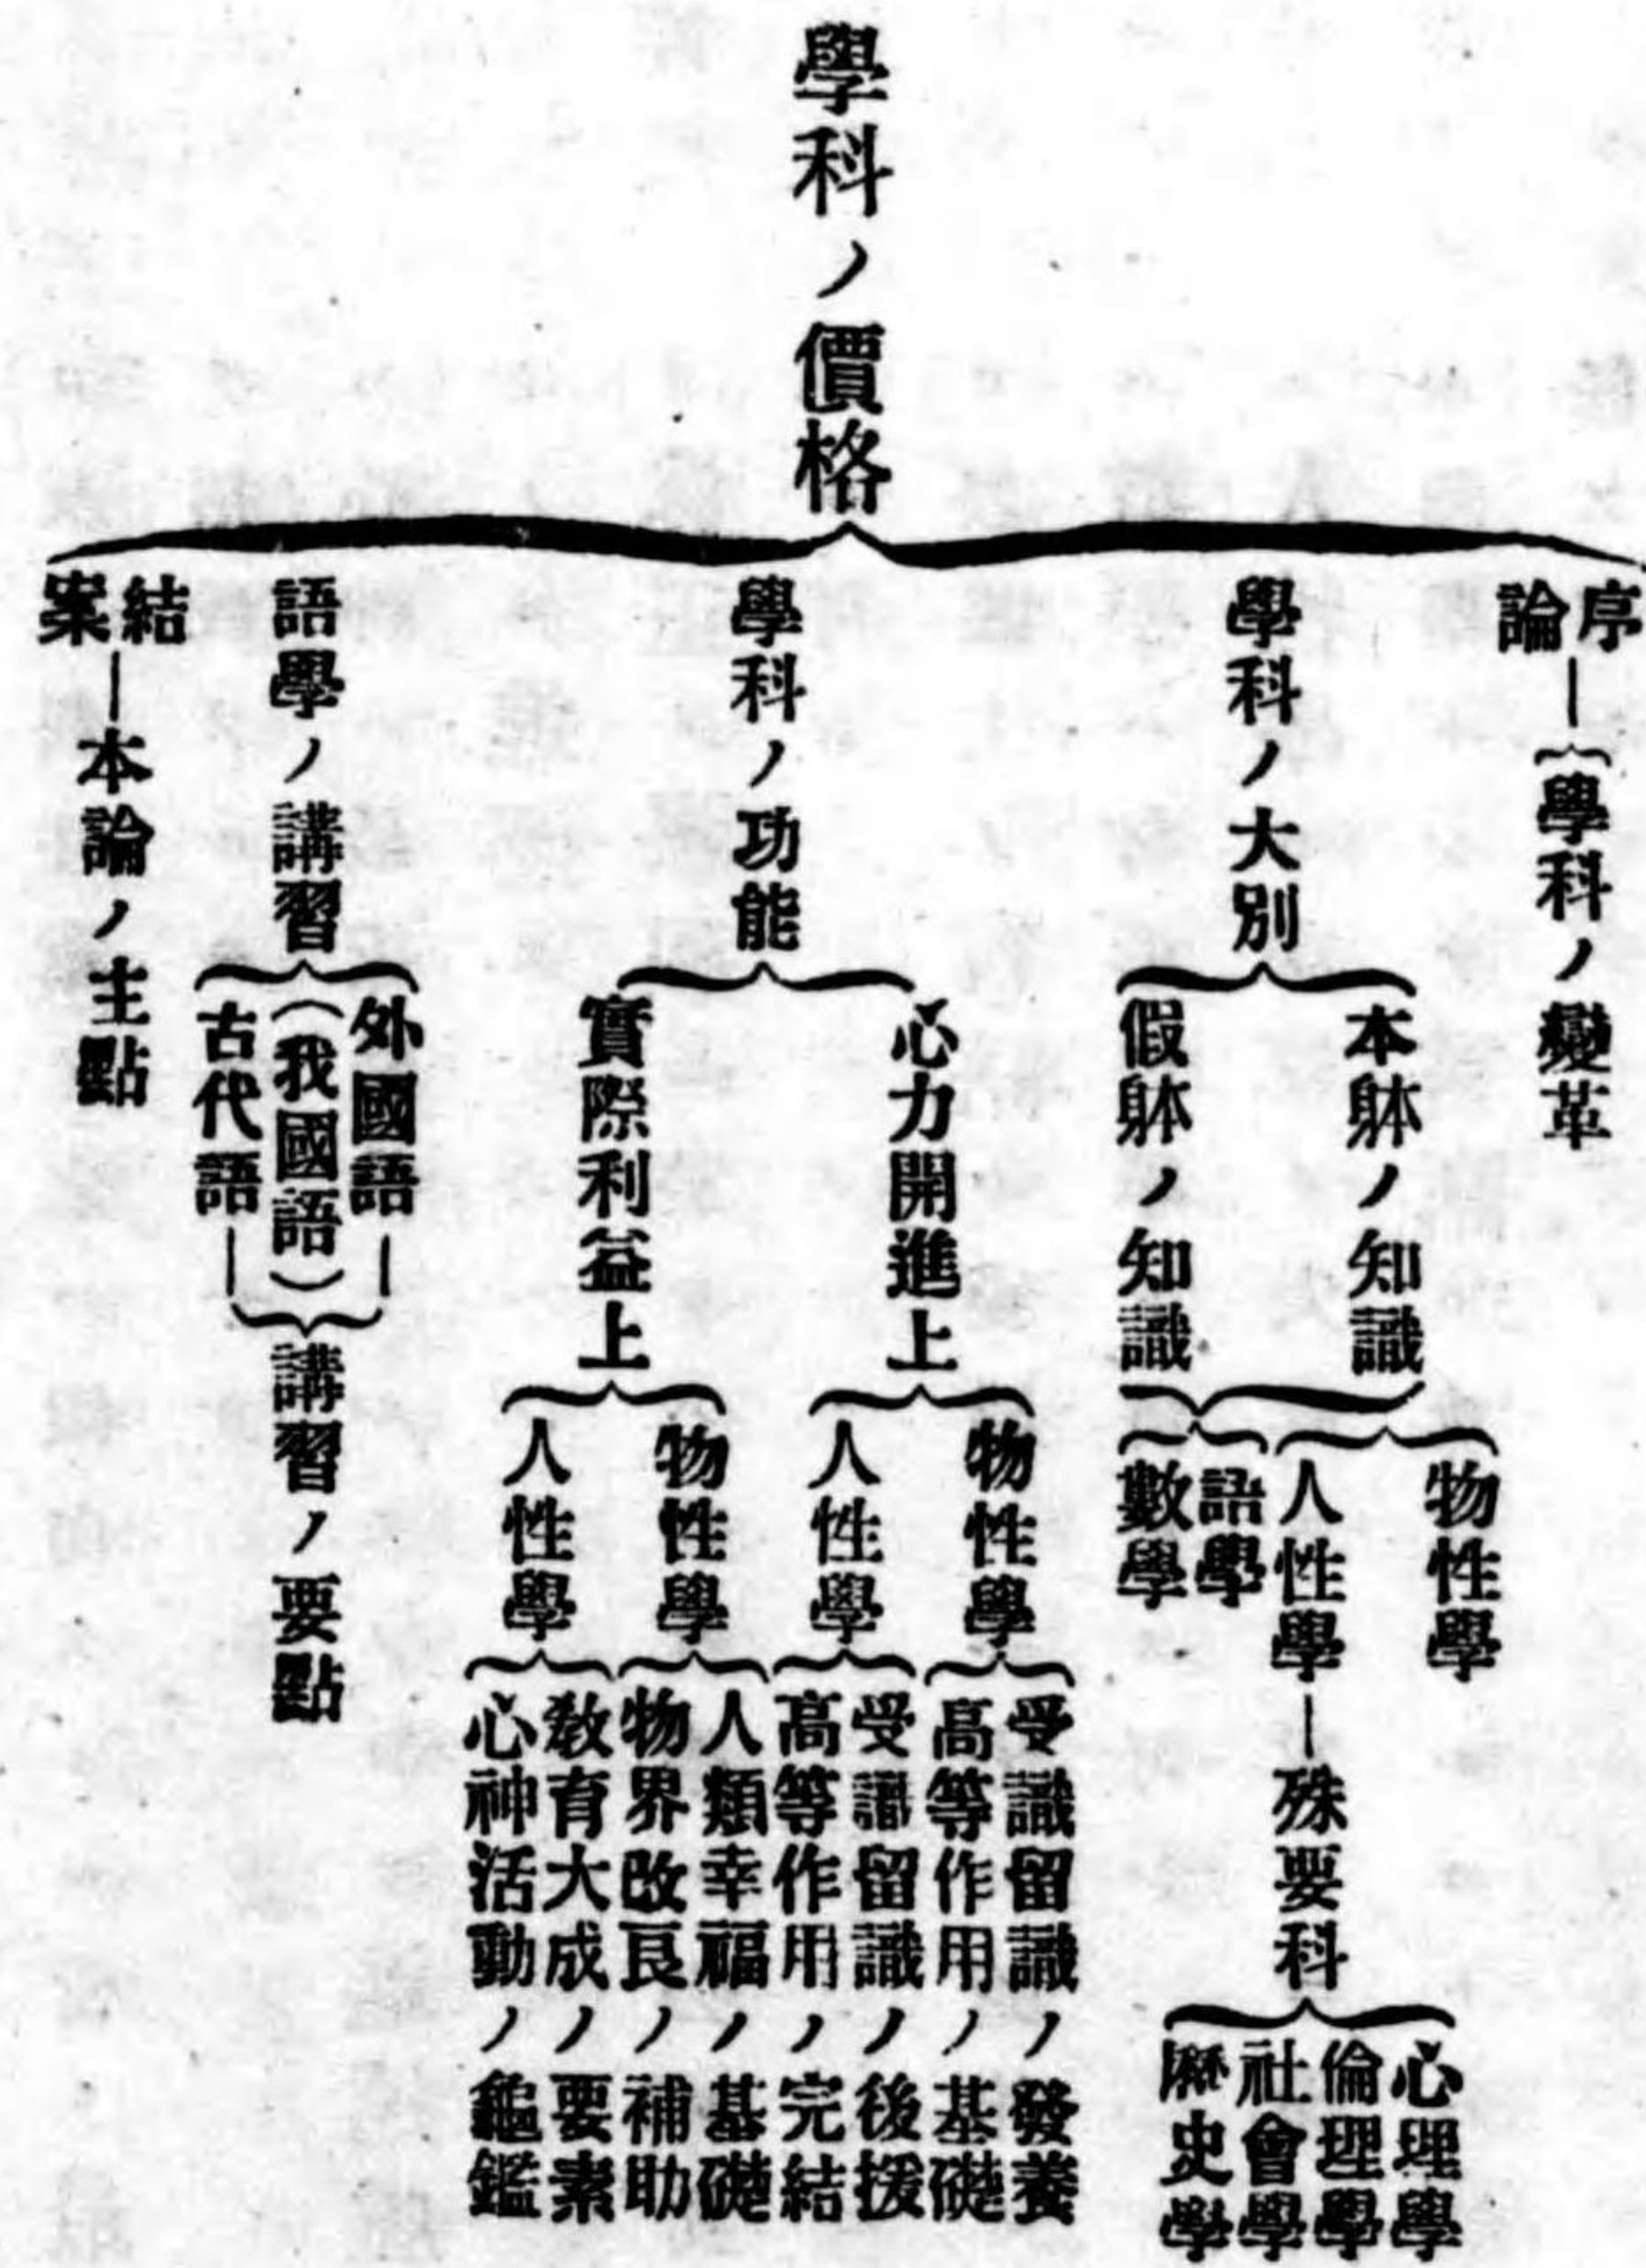 學科ノ價格
序論
學科ノ變革
學科ノ大別
本躰ノ知識
物性學
人性學
殊要科
心理學
倫理學
社會學
歷史學
假躰ノ知識
語學
數學
學科ノ功能
心力開進上
物性學
受識留識ノ發養
高等作用ノ基礎
人性學
受識留識ノ後援
高等作用ノ完結
實際利益上
物性學
人類幸福ノ基礎
物界改良ノ補助
人性學
敎育大成ノ要素
心神活動ノ龜鑑
語學ノ講習
外國語
(我國語)
古代語
講習ノ要點
結案
本論ノ主點